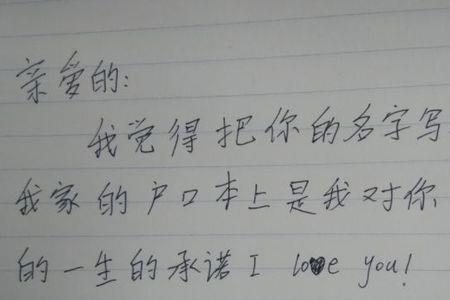 亲爱的:
我觉得把你的名字写
我家的户口本上是我对你
的一生的承诺I love you!